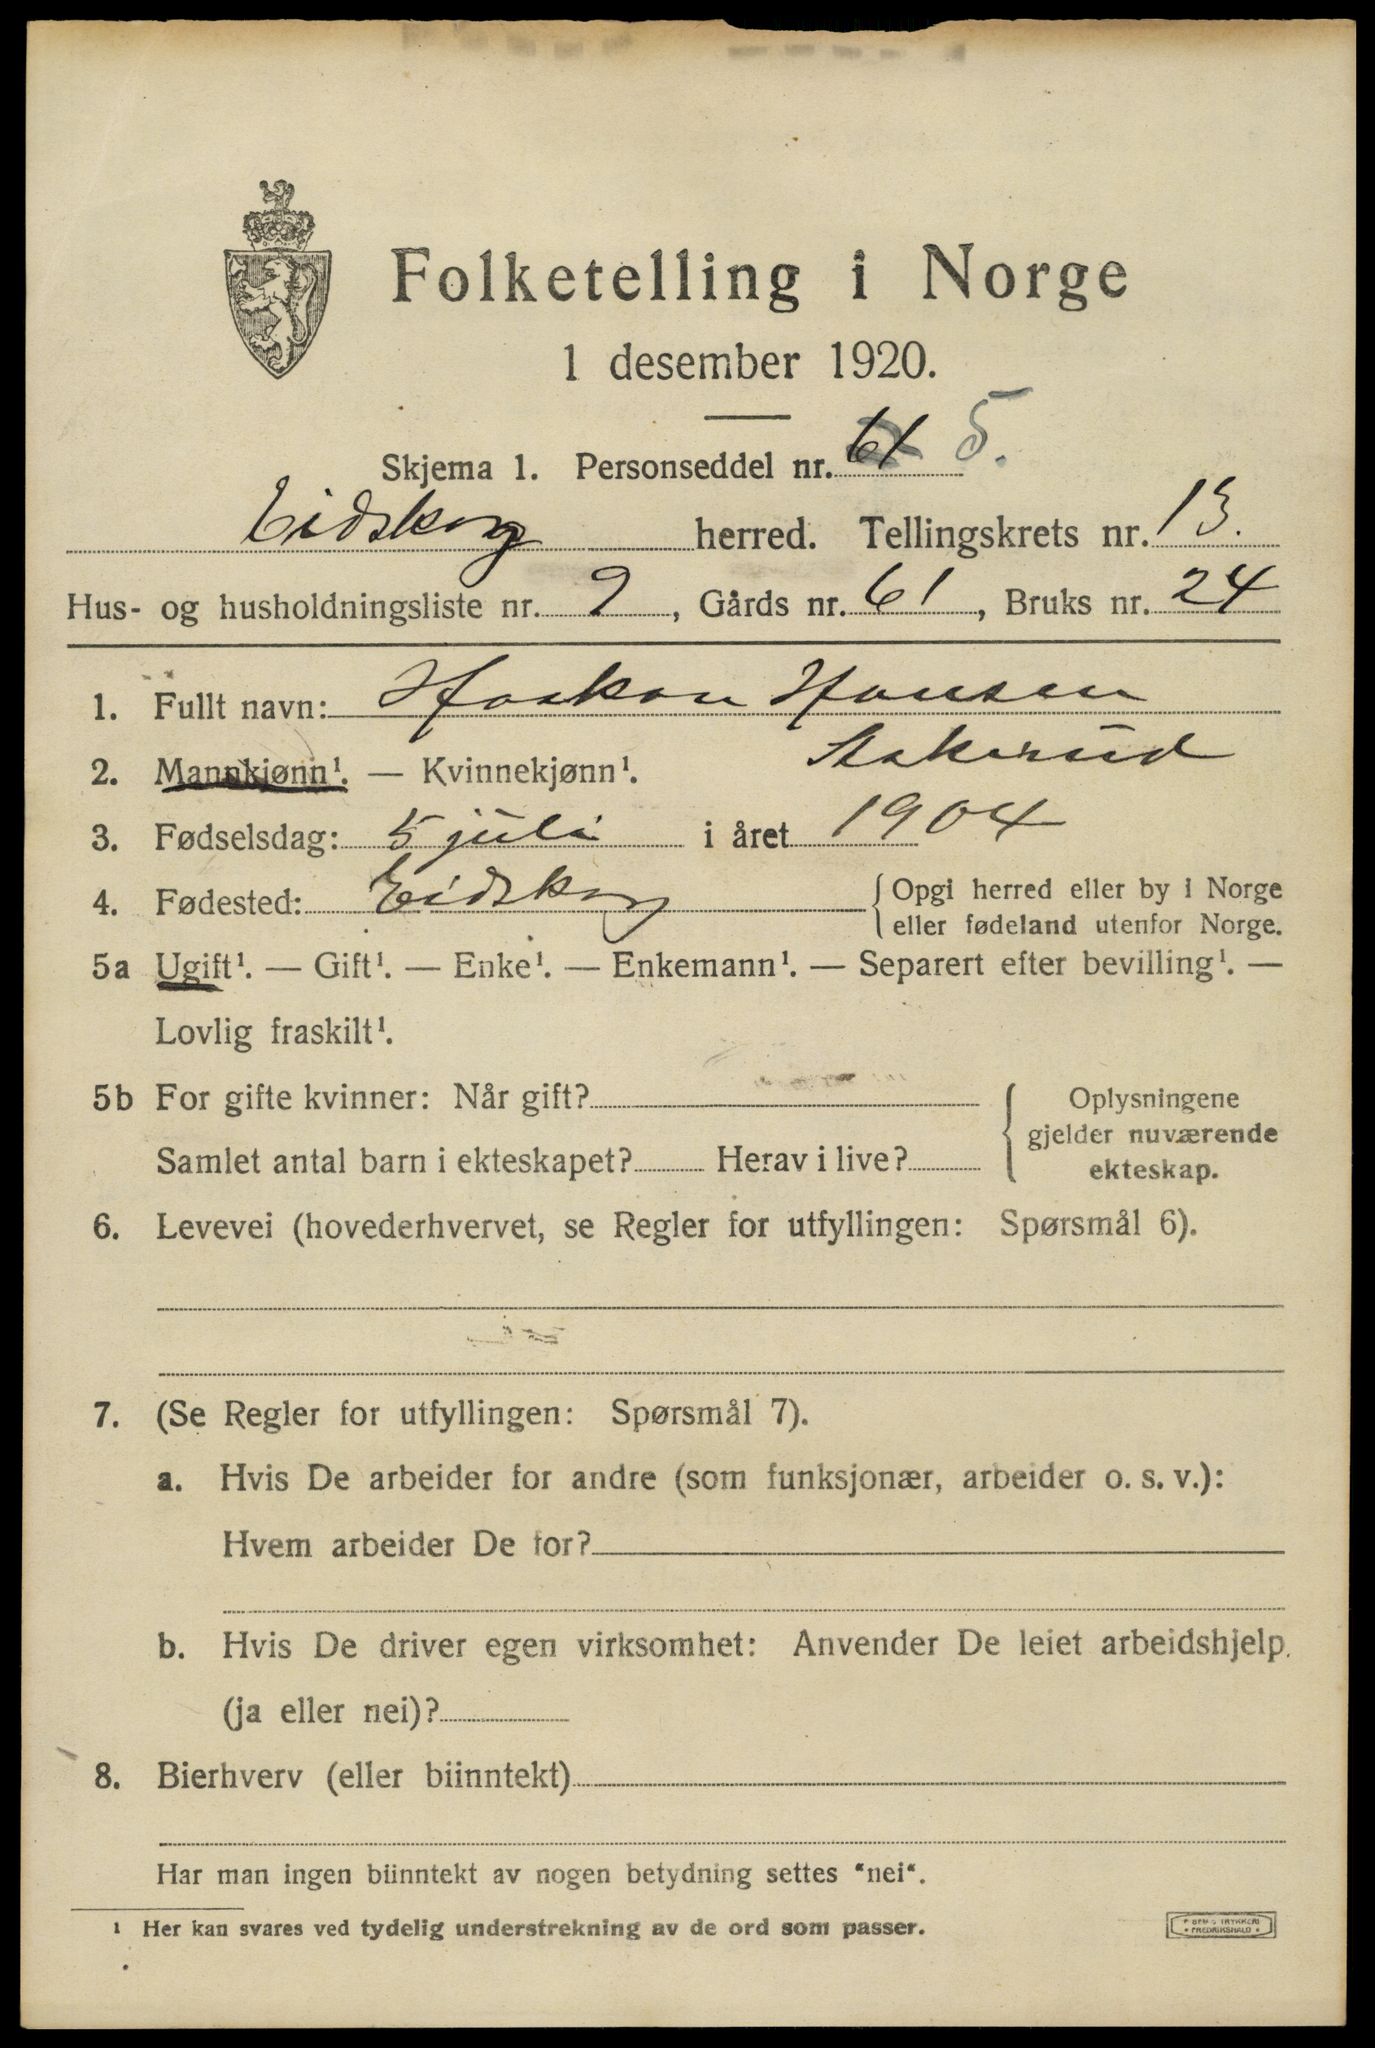 Folketelling i Norge
1 desember 1920.
Skjema 1. Personseddel nr. 5.
Eidskog herred. Tellingskrets nr. 13.
Hus- og husholdningsliste nr. 9, Gårds nr. 61, Bruks nr. 24
1. Fullt navn: Haakon Hansen
Aakerud
2. Mannkjønn¹. — Kvinnekjønn¹.
3. Fødselsdag: 5 juli i året 1904
4. Fødested: Eidskog
Opgi herred eller by i Norge
eller fødeland utenfor Norge.
5a Ugift¹. — Gift¹. — Enke¹. — Enkemann¹. — Separert efter bevilling¹. —
Lovlig fraskilt¹.
5b For gifte kvinner: Når gift?
Samlet antal barn i ekteskapet? Herav i live?
Oplysningene
gjelder nuværende
ekteskap.
6. Levevei (hovederhvervet, se Regler for utfyllingen: Spørsmål 6).
7. (Se Regler for utfyllingen: Spørsmål 7).
a. Hvis De arbeider for andre (som funksjonær, arbeider o. s. v.):
Hvem arbeider De for?
b. Hvis De driver egen virksomhet: Anvender De leiet arbeidshjelp
(ja eller nei)?
8. Bierhverv (eller biinntekt)
Har man ingen biinntekt av nogen betydning settes "nei".
¹ Her kan svares ved tydelig understrekning av de ord som passer.